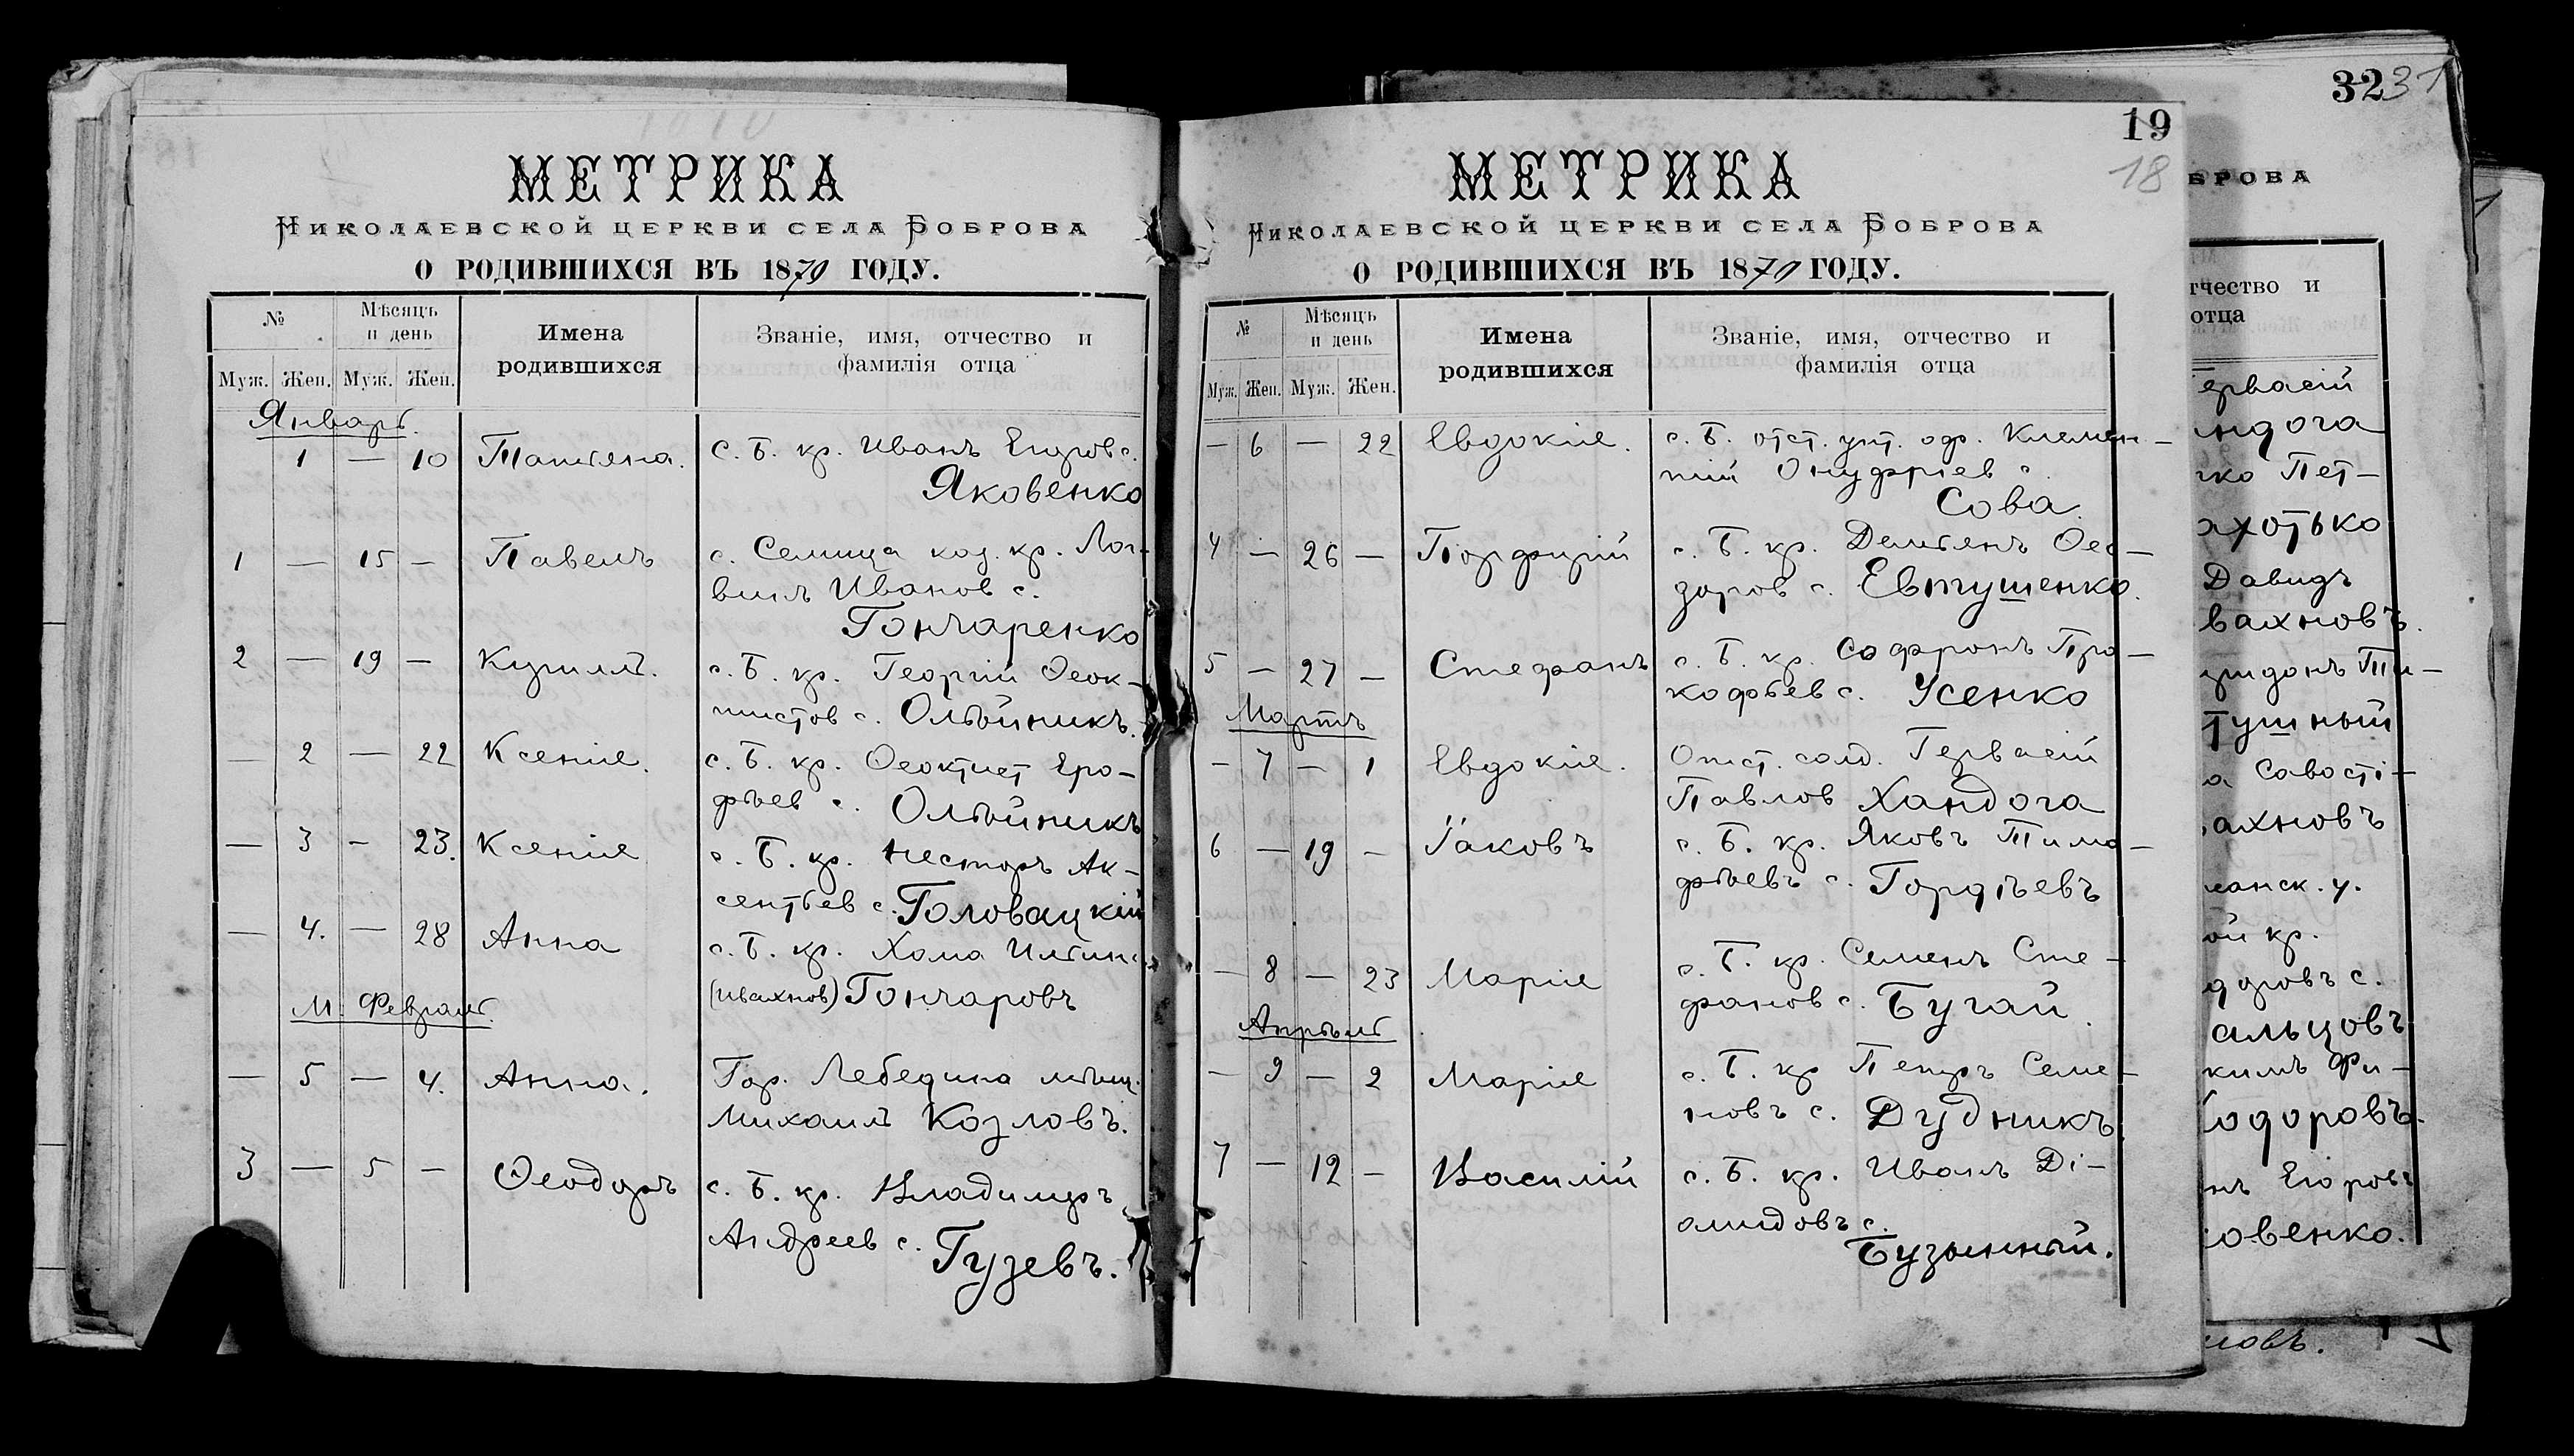 МЕТРИКА
НИКОЛАЕВСКОЙ ЦЕРКВИ СЕЛА БОБРОВА
О РОДИВШИХСЯ ВЪ 1870 ГОДУ.
№ Мѣсяцъ и день Имена родившихся Званіе, имя, отчество и фамилія отца
Муж. Жен. Муж. Жен.
Январь.
1 — 10 Татіяна. С. Б. кр. Иванъ Егоров с.
Яковенко
1 — 15 — Павелъ с. Селища каз. кр. Лог-
винъ Иванов с.
Гончаренко
2 — 19 — Кирилъ. с. Б. кр. Георгій Ѳеок-
тистов с. Олѣйникъ.
— 2 — 22 Ксенія. с. Б. кр. Ѳеоктист Еро-
фѣев с. Олѣйникъ
— 3 — 23. Ксенія с. Б. кр. Несторъ Ак-
сентьев с. Головацкій
— 4. — 28 Анна с. Б. кр. Хома
(Ивахнов) Гончаровъ
М. Февраль.
— 5 — 4. Анна. Гор. Лебедина мѣщ.
Михаилъ Козловъ.
3 — 5 — Ѳеодоръ с. Б. кр. Владимиръ
Андреев с. Гузевъ.
19
18
МЕТРИКА
НИКОЛАЕВСКОЙ ЦЕРКВИ СЕЛА БОБРОВА
О РОДИВШИХСЯ ВЪ 1870 ГОДУ.
№ Мѣсяцъ и день Имена родившихся Званіе, имя, отчество и фамилія отца
Муж. Жен. Муж. Жен.
— 6 — 22 Евдокія. с. Б. отст. унт. оф. Климен-
тій Онуфріев с.
Сова.
4 — 26 — Порфирій с. Б. кр. Демьянъ Ѳео-
доров с. Евтушенко.
5 — 27 — Стефанъ с. Б. кр. Софронъ Про-
кофьев с. Усенко
Мартъ
— 7 — 1 Евдокія. Отст. солд. Гервасій
Павлов Хандога
6 — 19 — Іаковъ с. Б. кр. Яковъ Тимо-
фѣевъ с. Гордѣевъ
— 8 — 23 Марія с. Б. кр. Семенъ Сте-
фанов с. Бугай.
Апрѣль
— 9 — 2 Марія с. Б. кр Петръ Семе-
новъ с. Дудникъ
7 — 12 — Василій с. Б. кр. Иванъ Ді-
амидовъ с.
Бузынный.
32 31
БРОВА
тчество и
отца
ервасій
ндога
ко Пет-
ахотько
Давидъ
вахновъ.
ридонъ Ти-
тушный
а Савості-
ахновъ
анск. у.
ой кр.
доровъ с.
альцовъ
кимъ Фи-
одоровъ.
нъ Егоровъ
овенко.
новъ.